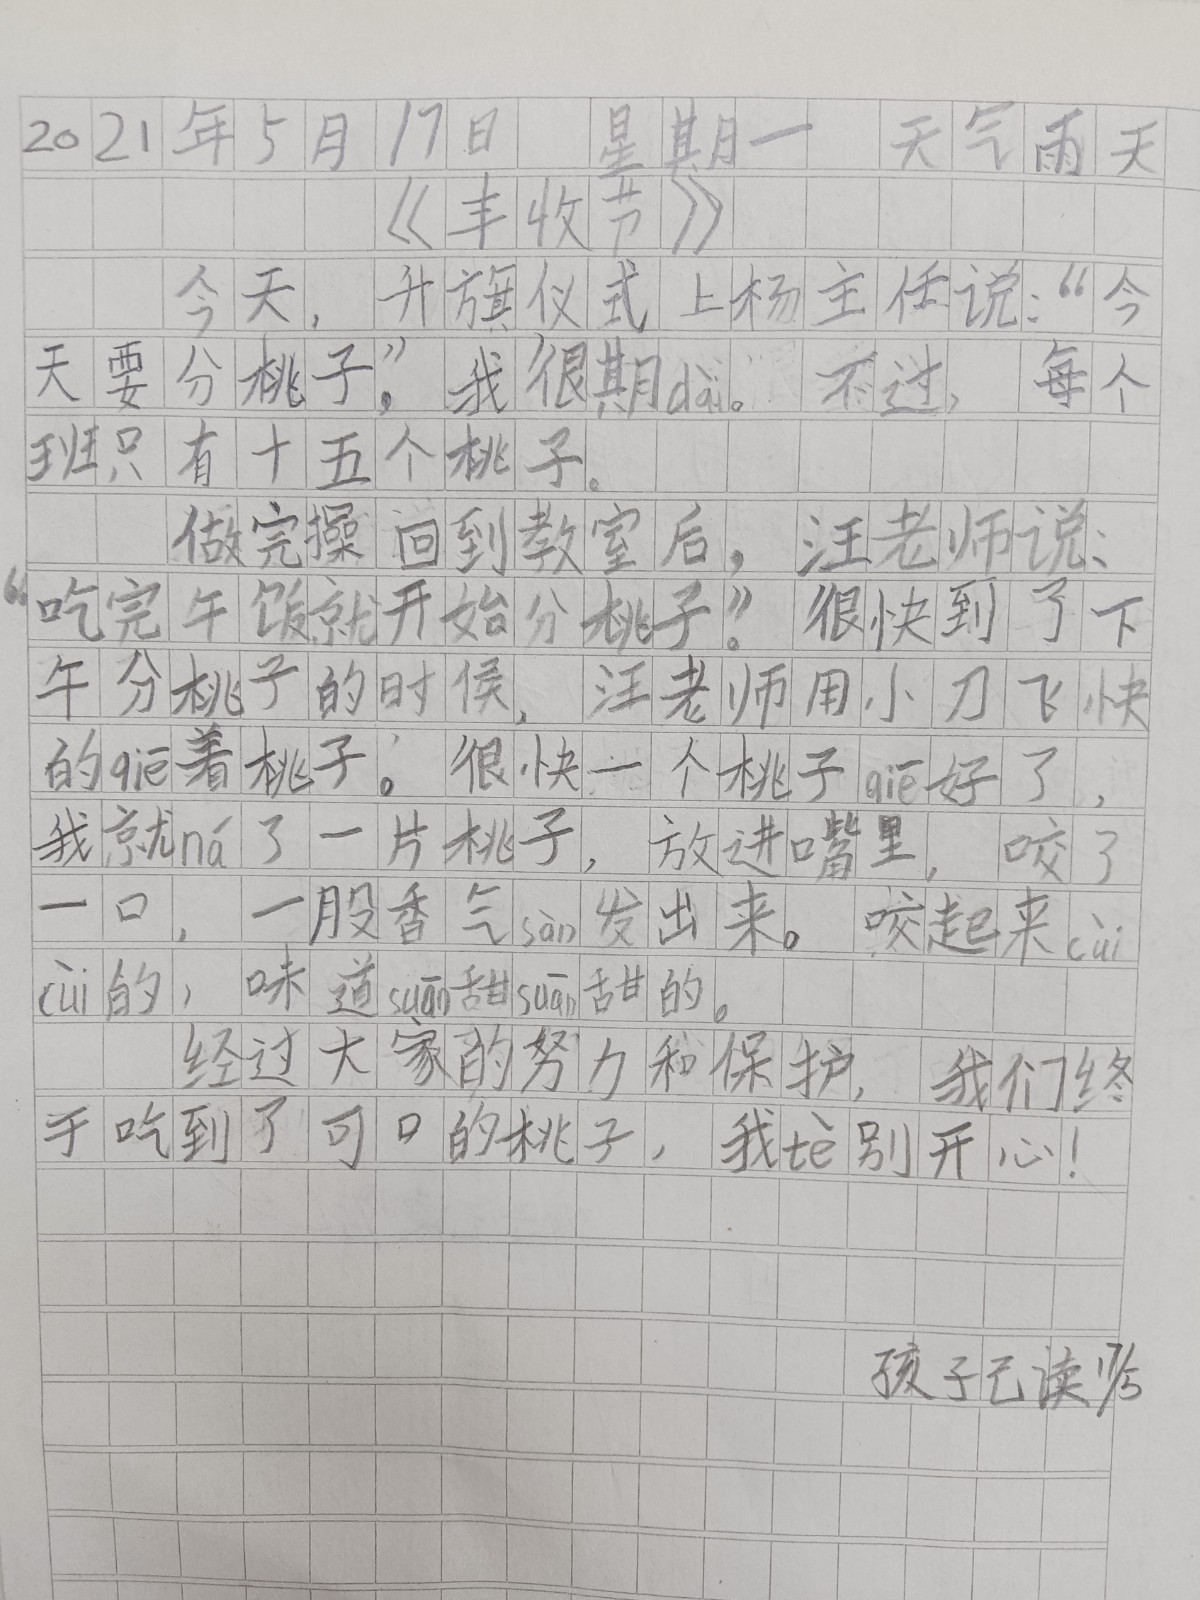 2021年5月17日 星期一 天气雨天
《丰收节》
今天，升旗仪式上杨主任说：“今
天要分桃子”，我很期dài。不过，每个
班只有十五个桃子。
做完操回到教室后，汪老师说：
“吃完午饭就开始分桃子”。很快到了下
午分桃子的时侯，汪老师用小刀飞快
的qiē着桃子。很快一个桃子qiē好了，
我就ná了一片桃子，放进嘴里，咬了
一口，一股香气sàn发出来。咬起来cùi
cùi的，味道suān甜suān甜的。
经过大家的努力和保护，我们终
于吃到了可口的桃子，我tè别开心！
孩子已读17/5